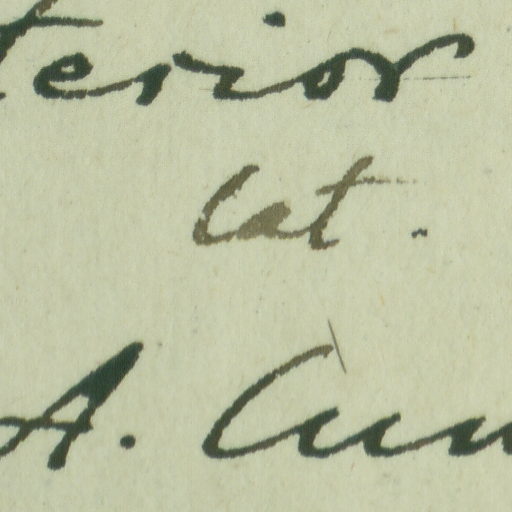 terior
Lat.
A. Cun